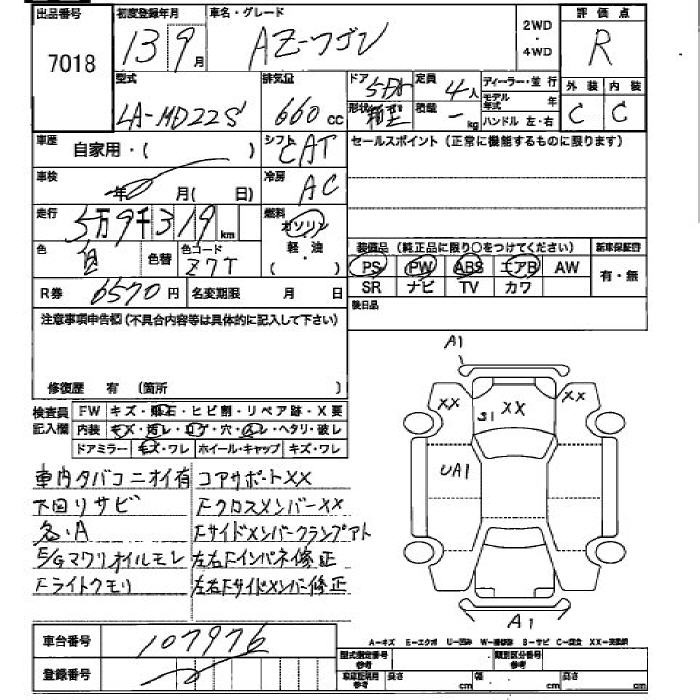 出品番号 初度登録年月 車名・グレード 2WD ・ 4WD 評価点
7018 13 9月 AZ-ワゴン R
型式 排気量 ドア 5DR 定員 4人 ディーラー・並行 外装 内装
LA-MD22S 660cc 形状 箱型 積量 - kg モデル年式 年 ハンドル 左・右 C C
車歴 自家用・( ) シフト CAT セールスポイント(正常に機能するものに限ります)
車検 年 月(日) 冷房 AC
走行 5万9千319km 燃料 ガソリン 軽・油 ( )
色 白 色替 色コード Z7T 装備品(純正品に限り○をつけてください) 新車保証書
PS PW ABS エアB AW 有・無
R券 6570円 名変期限 月 日 SR ナビ TV カワ
注意事項申告欄(不具合内容等は具体的に記入して下さい) 後日品
修復歴 有 (箇所 )
検査員記入欄 FW キズ・飛石・ヒビ割・リペア跡・X要
内装 キズ・汚レ・コゲ・穴・スレ・ヘタリ・破レ
ドアミラー キズ・ワレ ホイール・キャップ キズ・ワレ
車内タバコニオイ有 コアサポートXX
下回リサビ FクロスメンバーXX
各・A Fサイドメンバークランプアト
E/Gマワリオイルモレ 左右Fインパネ修正
Fライトクモリ 左右Fサイドメンバー修正
A1
XX XX XX
S1
UA1
A1
A-キズ E-エクボ U-凹み W-補修跡 B-サビ C-腐食 XX-交換済
車台番号 107976 型式指定番号 参考 類別区分番号 参考
登録番号 車庫証明用 参考 長さ cm 幅 cm 高さ cm